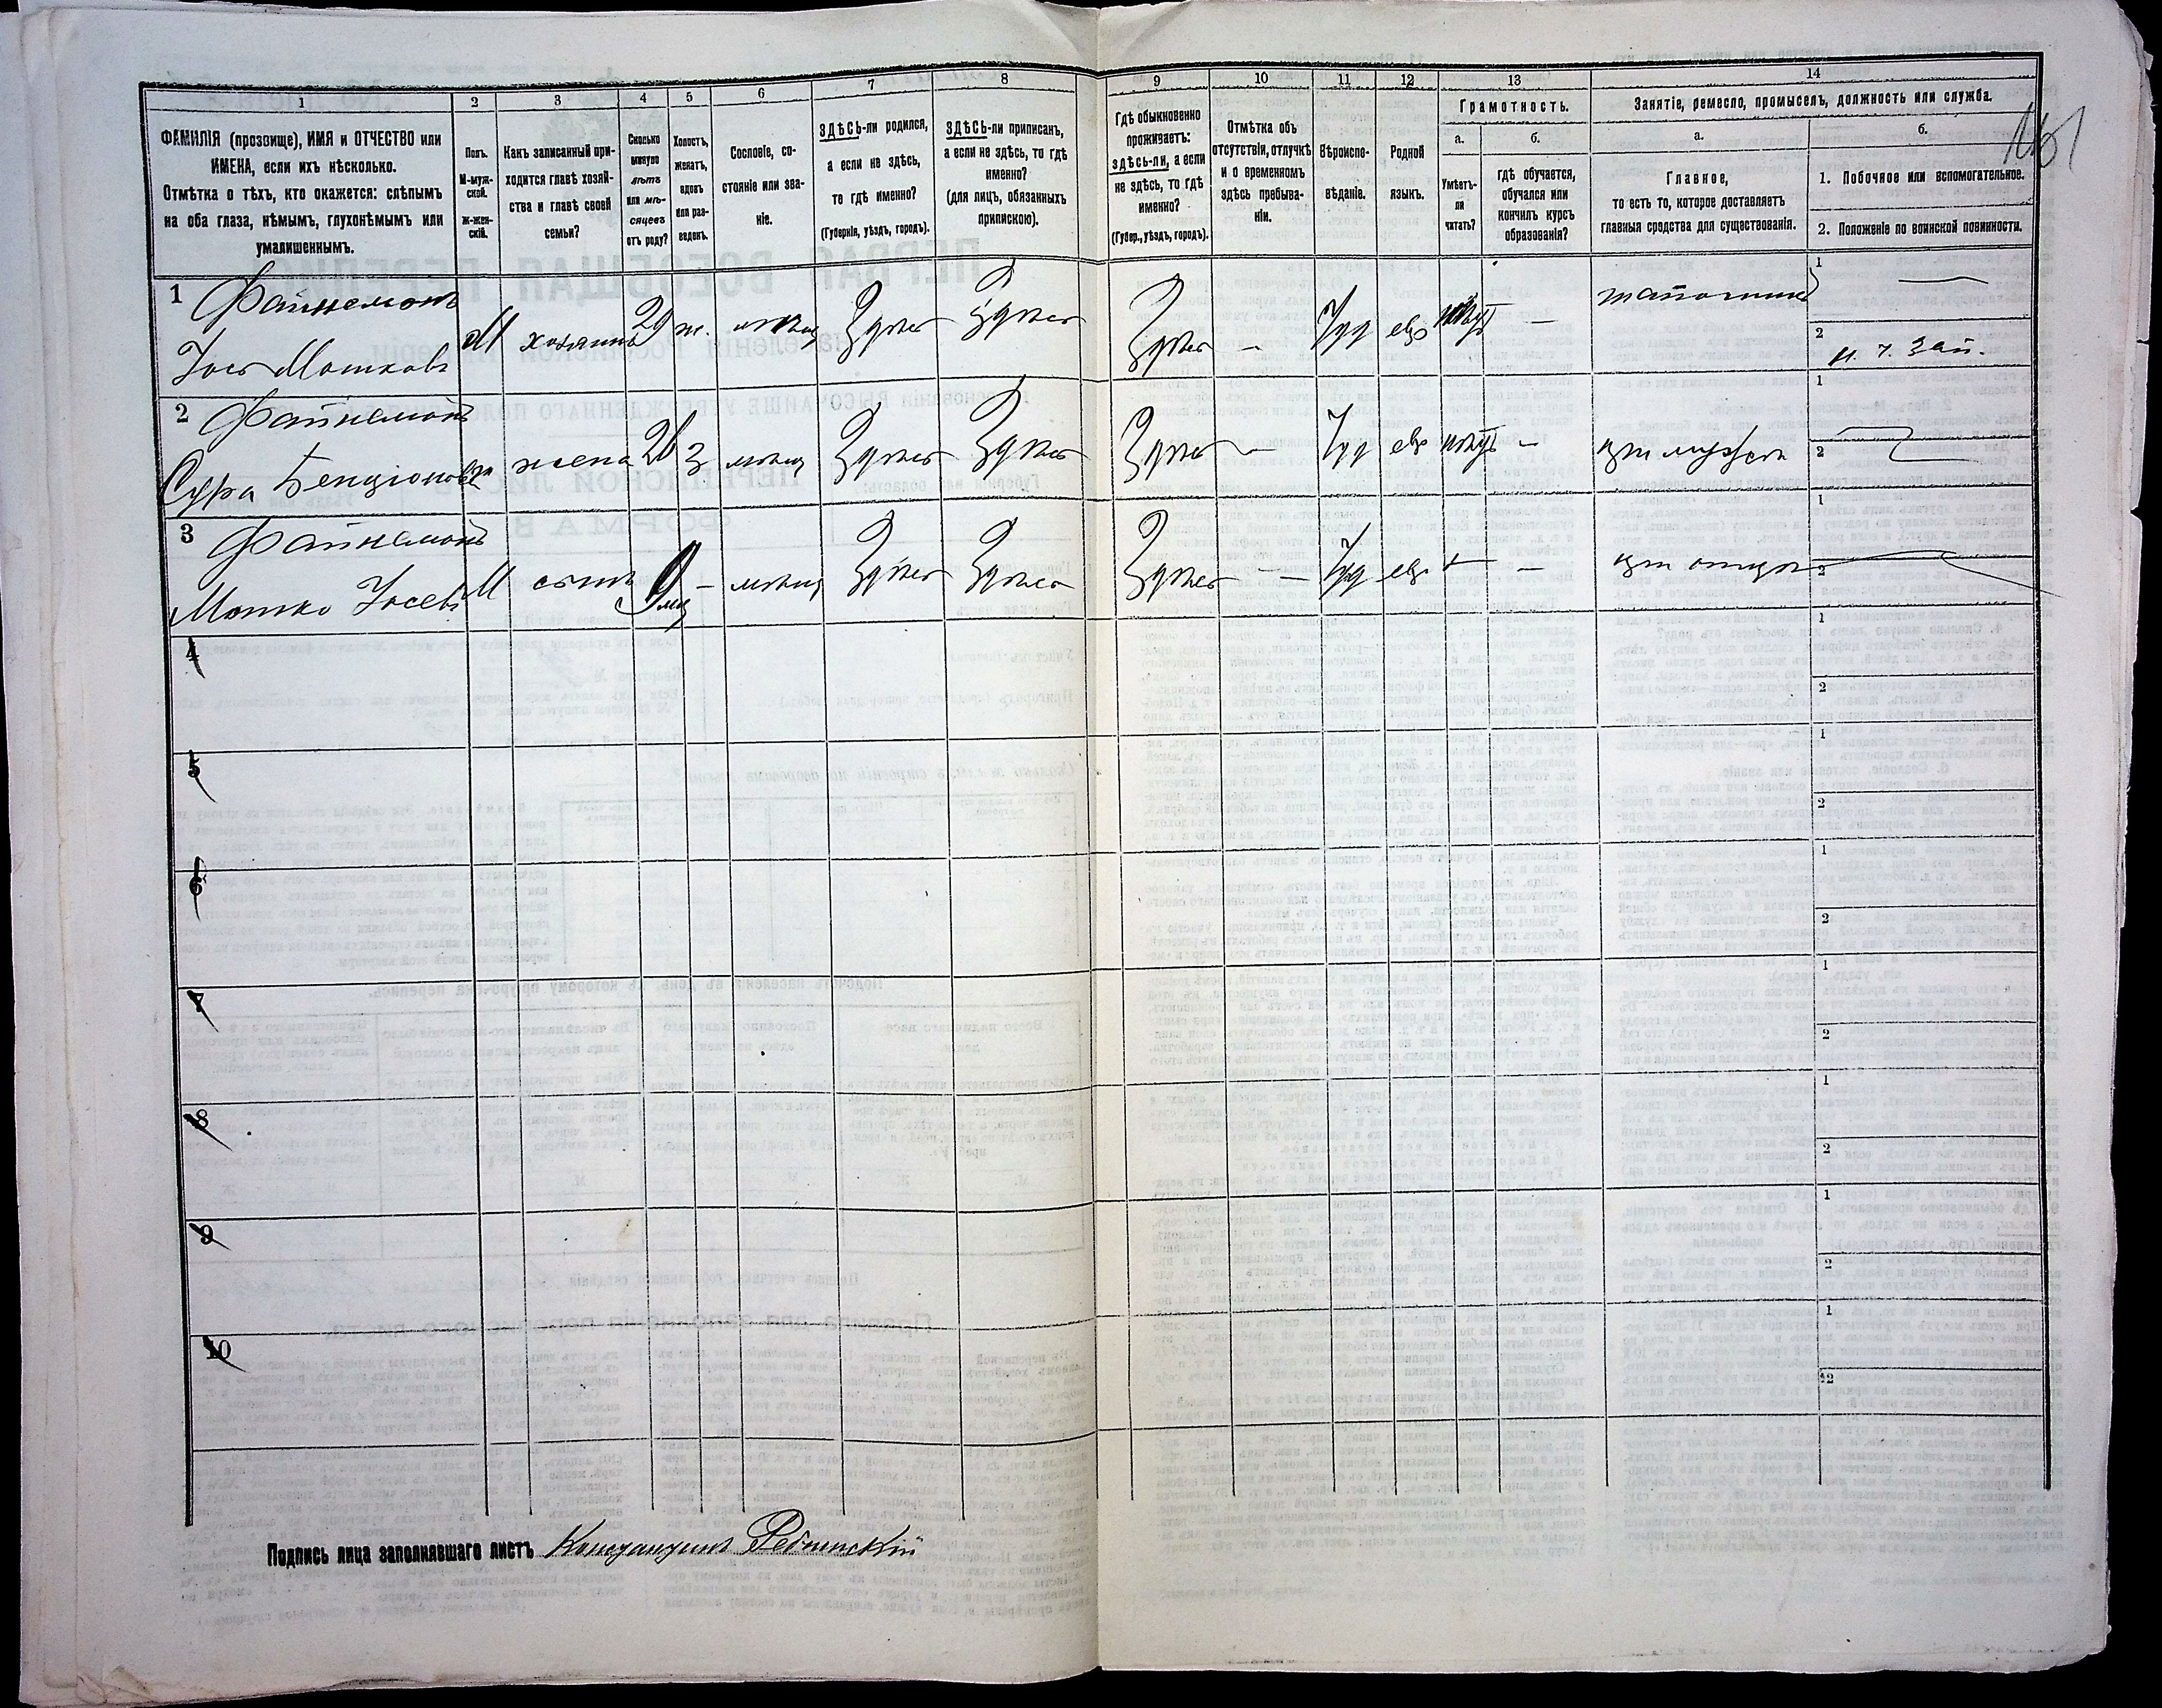 1
2
3
4
5
6
7
8
ФАМИЛІЯ (прозвище), ИМЯ и ОТЧЕСТВО или
ИМЕНА, если ихъ нѣсколько.
Отмѣтка о тѣхъ, кто окажется: слѣпымъ
на оба глаза, нѣмымъ, глухонѣмымъ или
умалишеннымъ.
Полъ.
М-муж-
ской.
Ж-жен-
скій.
Какъ записанный при-
ходится главѣ хозяй-
ства и главѣ своей
семьи?
Сколько
минуло
лѣтъ
или мѣ-
сяцевъ
отъ роду?
Холостъ,
женатъ,
вдовъ
или раз-
веденъ.
Сословіе, со-
стояніе или зва-
ніе.
ЗДѢСЬ-ли родился,
а если не здѣсь,
то гдѣ именно?
(Губернія, уѣздъ, городъ).
ЗДѢСЬ-ли приписанъ,
а если не здѣсь, то гдѣ
именно?
(для лицъ, обязанныхъ
припискою).
9
10
11
12
13
14
Гдѣ обыкновенно
проживаетъ:
здѣсь-ли, а если
не здѣсь, то гдѣ
именно?
(Губер., уѣздъ, городъ).
Отмѣтка объ
отсутствіи, отлучкѣ
и о временномъ
здѣсь пребыва-
ніи.
Вѣроиспо-
вѣданіе.
Родной
языкъ.
Грамотность.
а.
б.
Умѣетъ-
ли
читать?
гдѣ обучается,
обучался или
кончилъ курсъ
образованія?
Занятіе, ремесло, промыселъ, должность или служба.
а.
б.
Главное,
то есть то, которое доставляетъ
главныя средства для существованія.
1. Побочное или вспомогательное.
2. Положеніе по воинской повинности.
1 Файнемонъ
Іось Мошковъ
М хозяинъ 29 ж. мѣщ Здѣсь Здѣсь
Здѣсь — Іуд евр — шапошникъ
1 —
2 н. ч. зап.
2 Файнемонъ
Сура Бенціонова
жена 26 з мѣщ Здѣсь Здѣсь
Здѣсь — Іуд евр — при мужѣ
1
2
3 Файнемонъ
Мошко Іосевъ
М сынъ 9 мѣс — мѣщ Здѣсь Здѣсь
Здѣсь — Іуд евр — — при отцѣ
1
2
4
1
2
5
1
2
6
1
2
7
1
2
8
1
2
9
1
2
10
1
2
Подпись лица заполнявшаго листъ